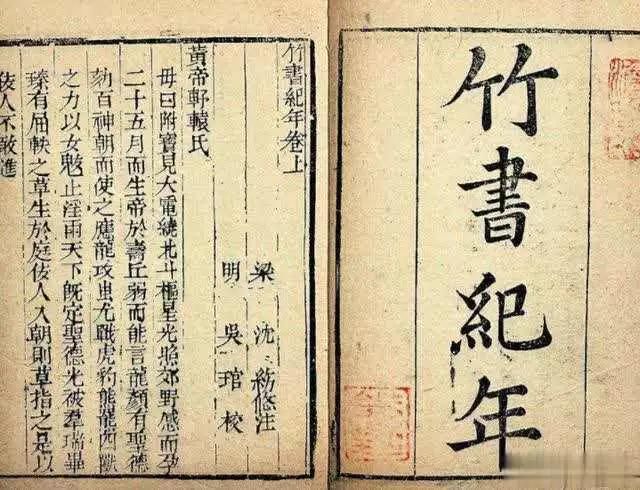 竹書紀年
竹書紀年卷上
梁 沈 注
明 吳琯校
黃帝軒轅氏
母曰附寶見大電繞北斗樞星光照郊野感而孕
二十五月而生帝於壽丘弱而能言龍顏有聖德
劾百神朝而使之應龍攻蚩尤戰虎豹熊羆四獸
之力以女魃止淫雨天下既定聖德光被羣瑞畢
臻有屈軼之草生於庭佞人入朝則草指之是以
佞人不敢進